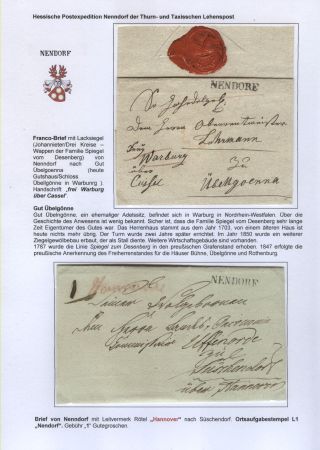 Hessische Postexpedition Nenndorf der Thurn- und Taxisschen Lehenspost
NENDORF
NENDORF
Lehrmann
frey
Warburg
zu
über
Cassel
Franco-Brief mit Lacksiegel
(Johanniter/Drei Kreise –
Wappen der Familie Spiegel
vom Desenberg) von
Nenndorf nach Gut
Übelgoenna (heute
Gutshaus/Schloss
Übelgönne in Warburg ).
Handschrift „frei Warburg
über Cassel“.
Gut Übelgönne
Gut Übelgönne, ein ehemaliger Adelssitz, befindet sich in Warburg in Nordrhein-Westfalen. Über die
Geschichte des Anwesens ist wenig bekannt. Sicher ist, daß die Familie Spiegel vom Desenberg sehr lange
Zeit Eigentümer des Gutes war. Das Herrenhaus stammt aus dem Jahr 1703, von einem älteren Haus ist
heute nichts mehr übrig. Der Turm wurde zwei Jahre später errichtet. Im Jahr 1850 wurde ein weiterer
Ziegelgewölbebau erbaut, der als Stall diente. Weitere Wirtschaftsgebäude sind vorhanden.
1787 wurde die Linie Spiegel zum Desenberg in den preußischen Grafenstand erhoben. 1847 erfolgte die
preußische Anerkennung des Freiherrenstandes für die Häuser Bühne, Übelgönne und Rothenburg.
NENDORF
Hannover
über Hannover
Brief von Nenndorf mit Leitvermerk Rötel „Hannover“ nach Süschendorf. Ortsaufgabestempel L1
„Nendorf“. Gebühr „1“ Gutegroschen.